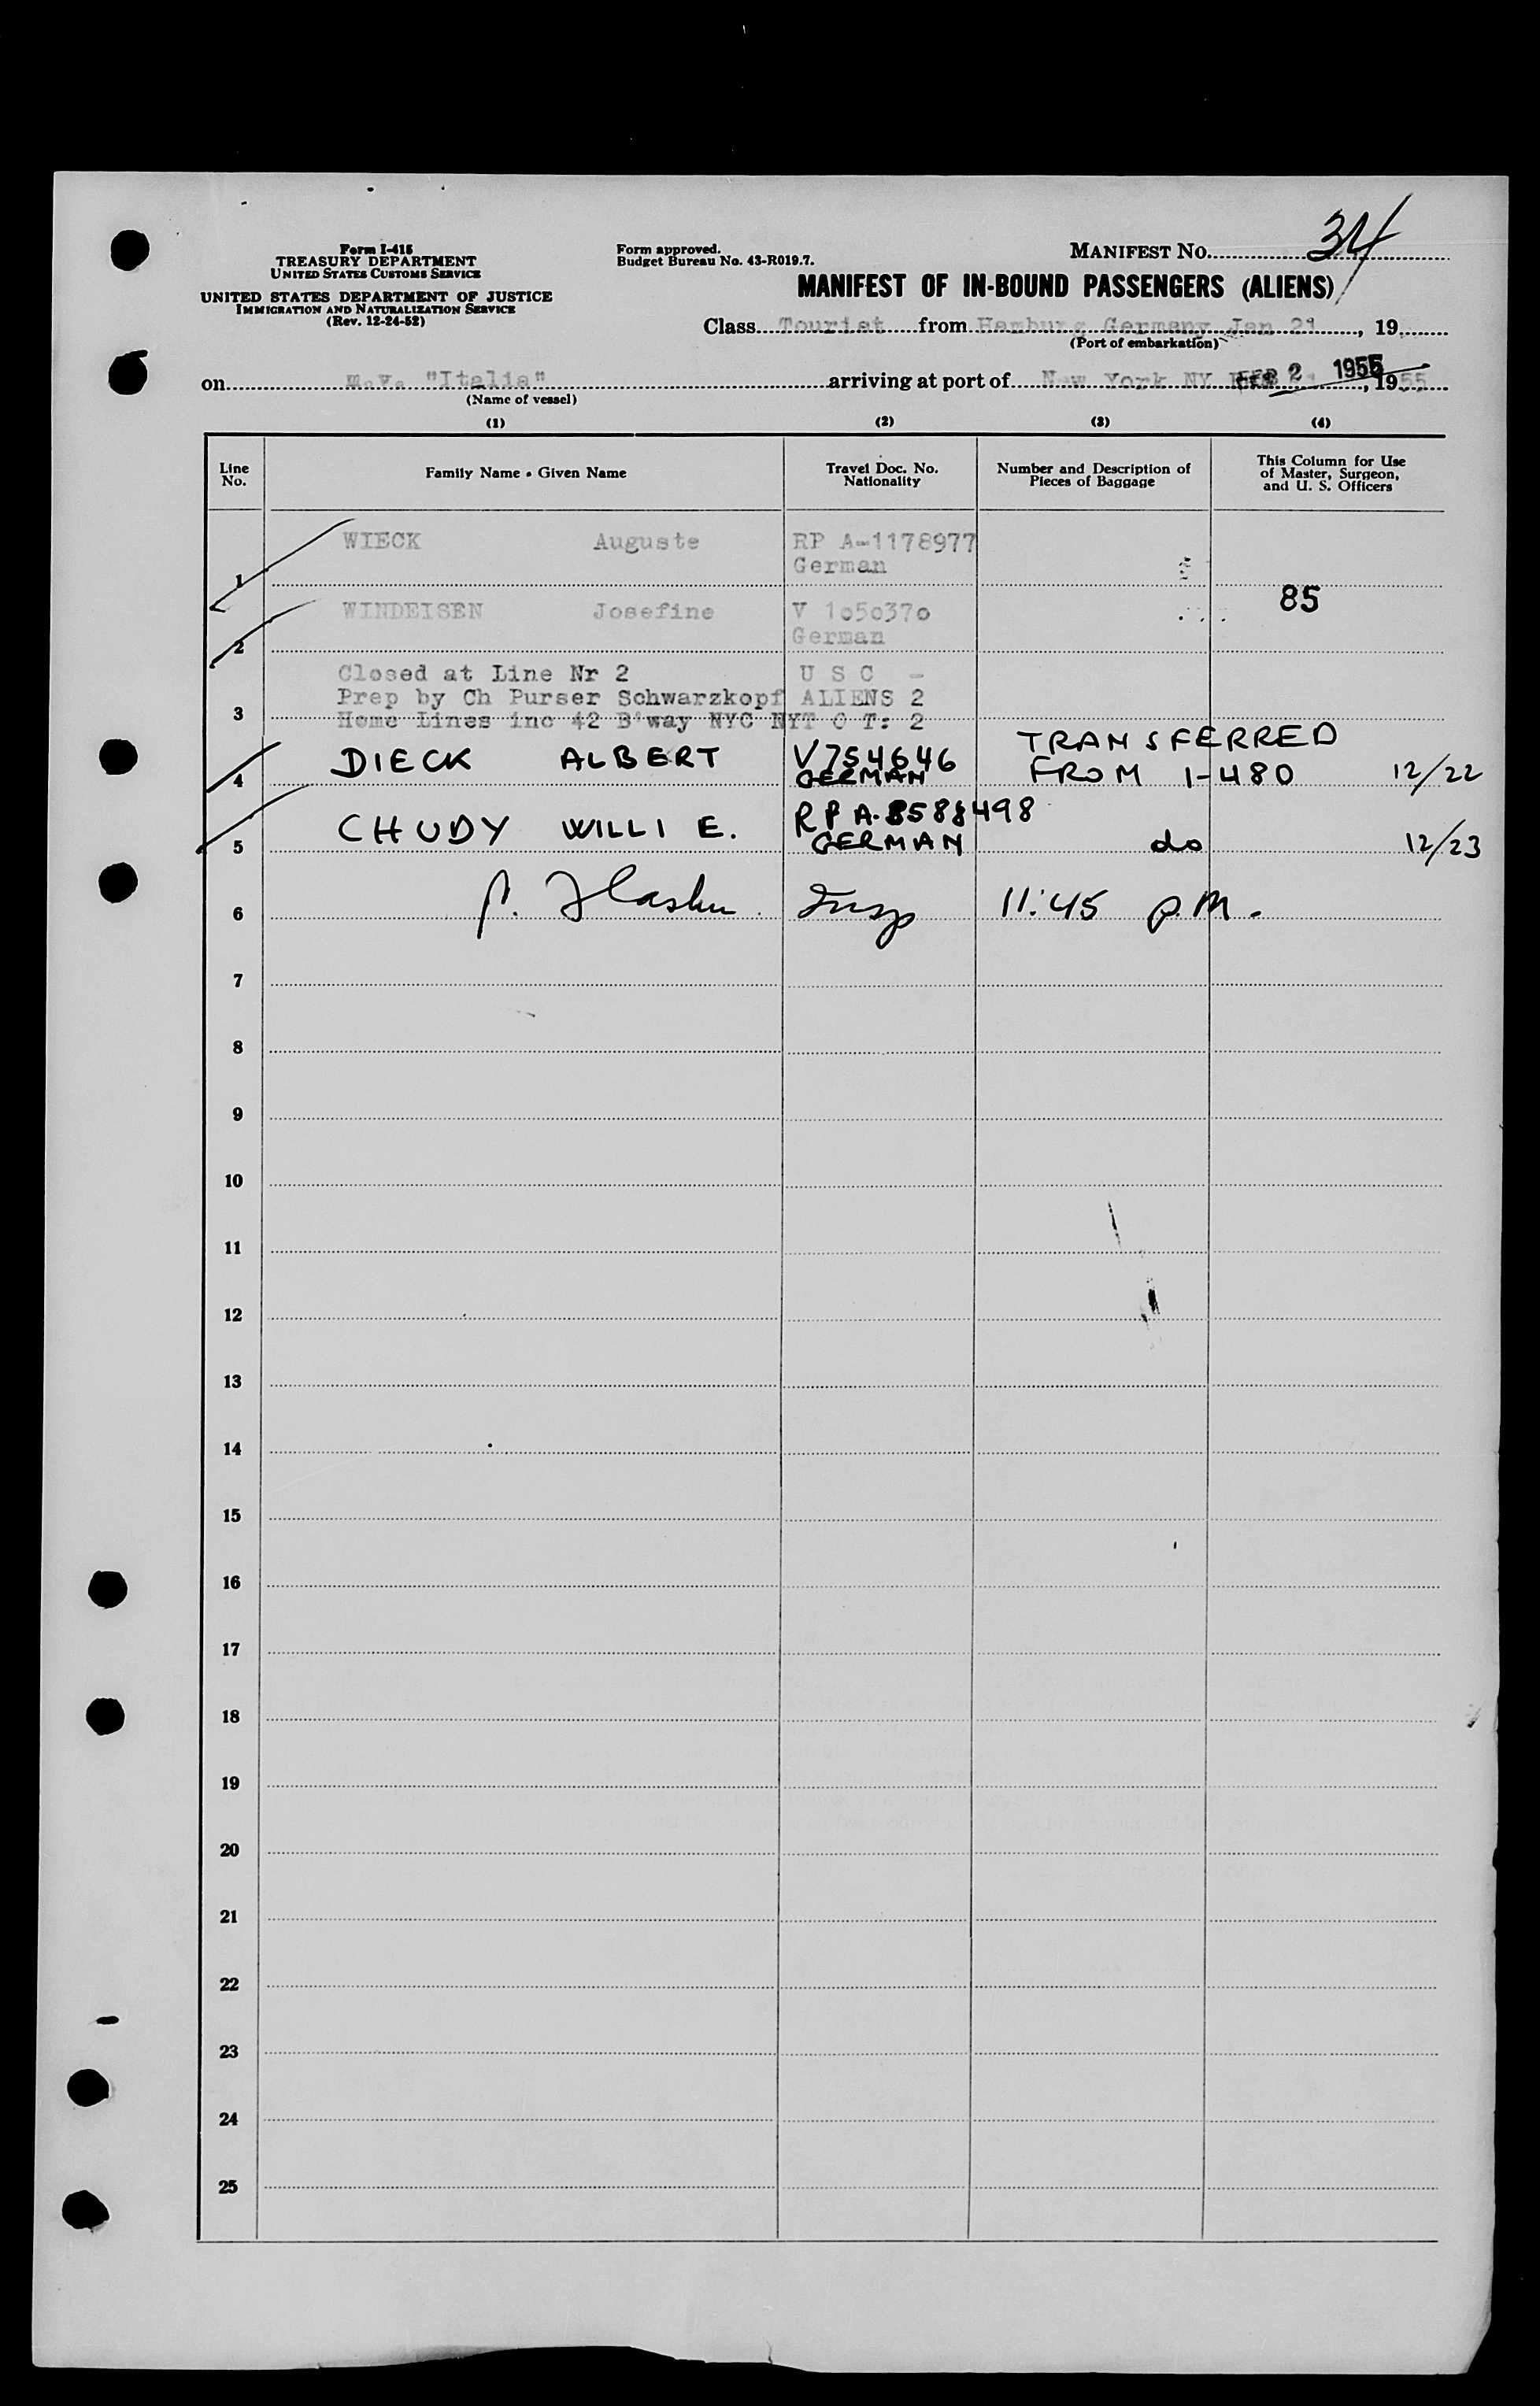 Form I-415
TREASURY DEPARTMENT
UNITED STATES CUSTOMS SERVICE
UNITED STATES DEPARTMENT OF JUSTICE
IMMIGRATION AND NATURALIZATION SERVICE
(Rev. 12-24-52)
Form approved.
Budget Bureau No. 43-R019.7.
MANIFEST No. 34
MANIFEST OF IN-BOUND PASSENGERS (ALIENS)
Class Tourist from Hamburg Germany Jan 21, 19
(Port of embarkation)
on m.v. "Italia" arriving at port of New York NY FEB 2 1955, 1955
(Name of vessel)
(1) (2) (3) (4)
Line No. Family Name - Given Name Travel Doc. No. Nationality Number and Description of Pieces of Baggage This Column for Use of Master, Surgeon, and U. S. Officers
1 WIECK Auguste RP A-1178977
German
85
2 WINDEISEN Josefine V 1050370
German
Closed at Line Nr 2 U S C -
Prep by Ch Purser Schwarzkopf ALIENS 2
3 Home Lines inc 42 B'way NYC NYT O T: 2
4 DIECK ALBERT V754646 GERMAN TRANSFERRED FROM I-480 12/22
5 CHUDY WILLI E. RP A-8588498 GERMAN do 12/23
6 Insp 11:45 P.M.
7
8
9
10
11
12
13
14
15
16
17
18
19
20
21
22
23
24
25